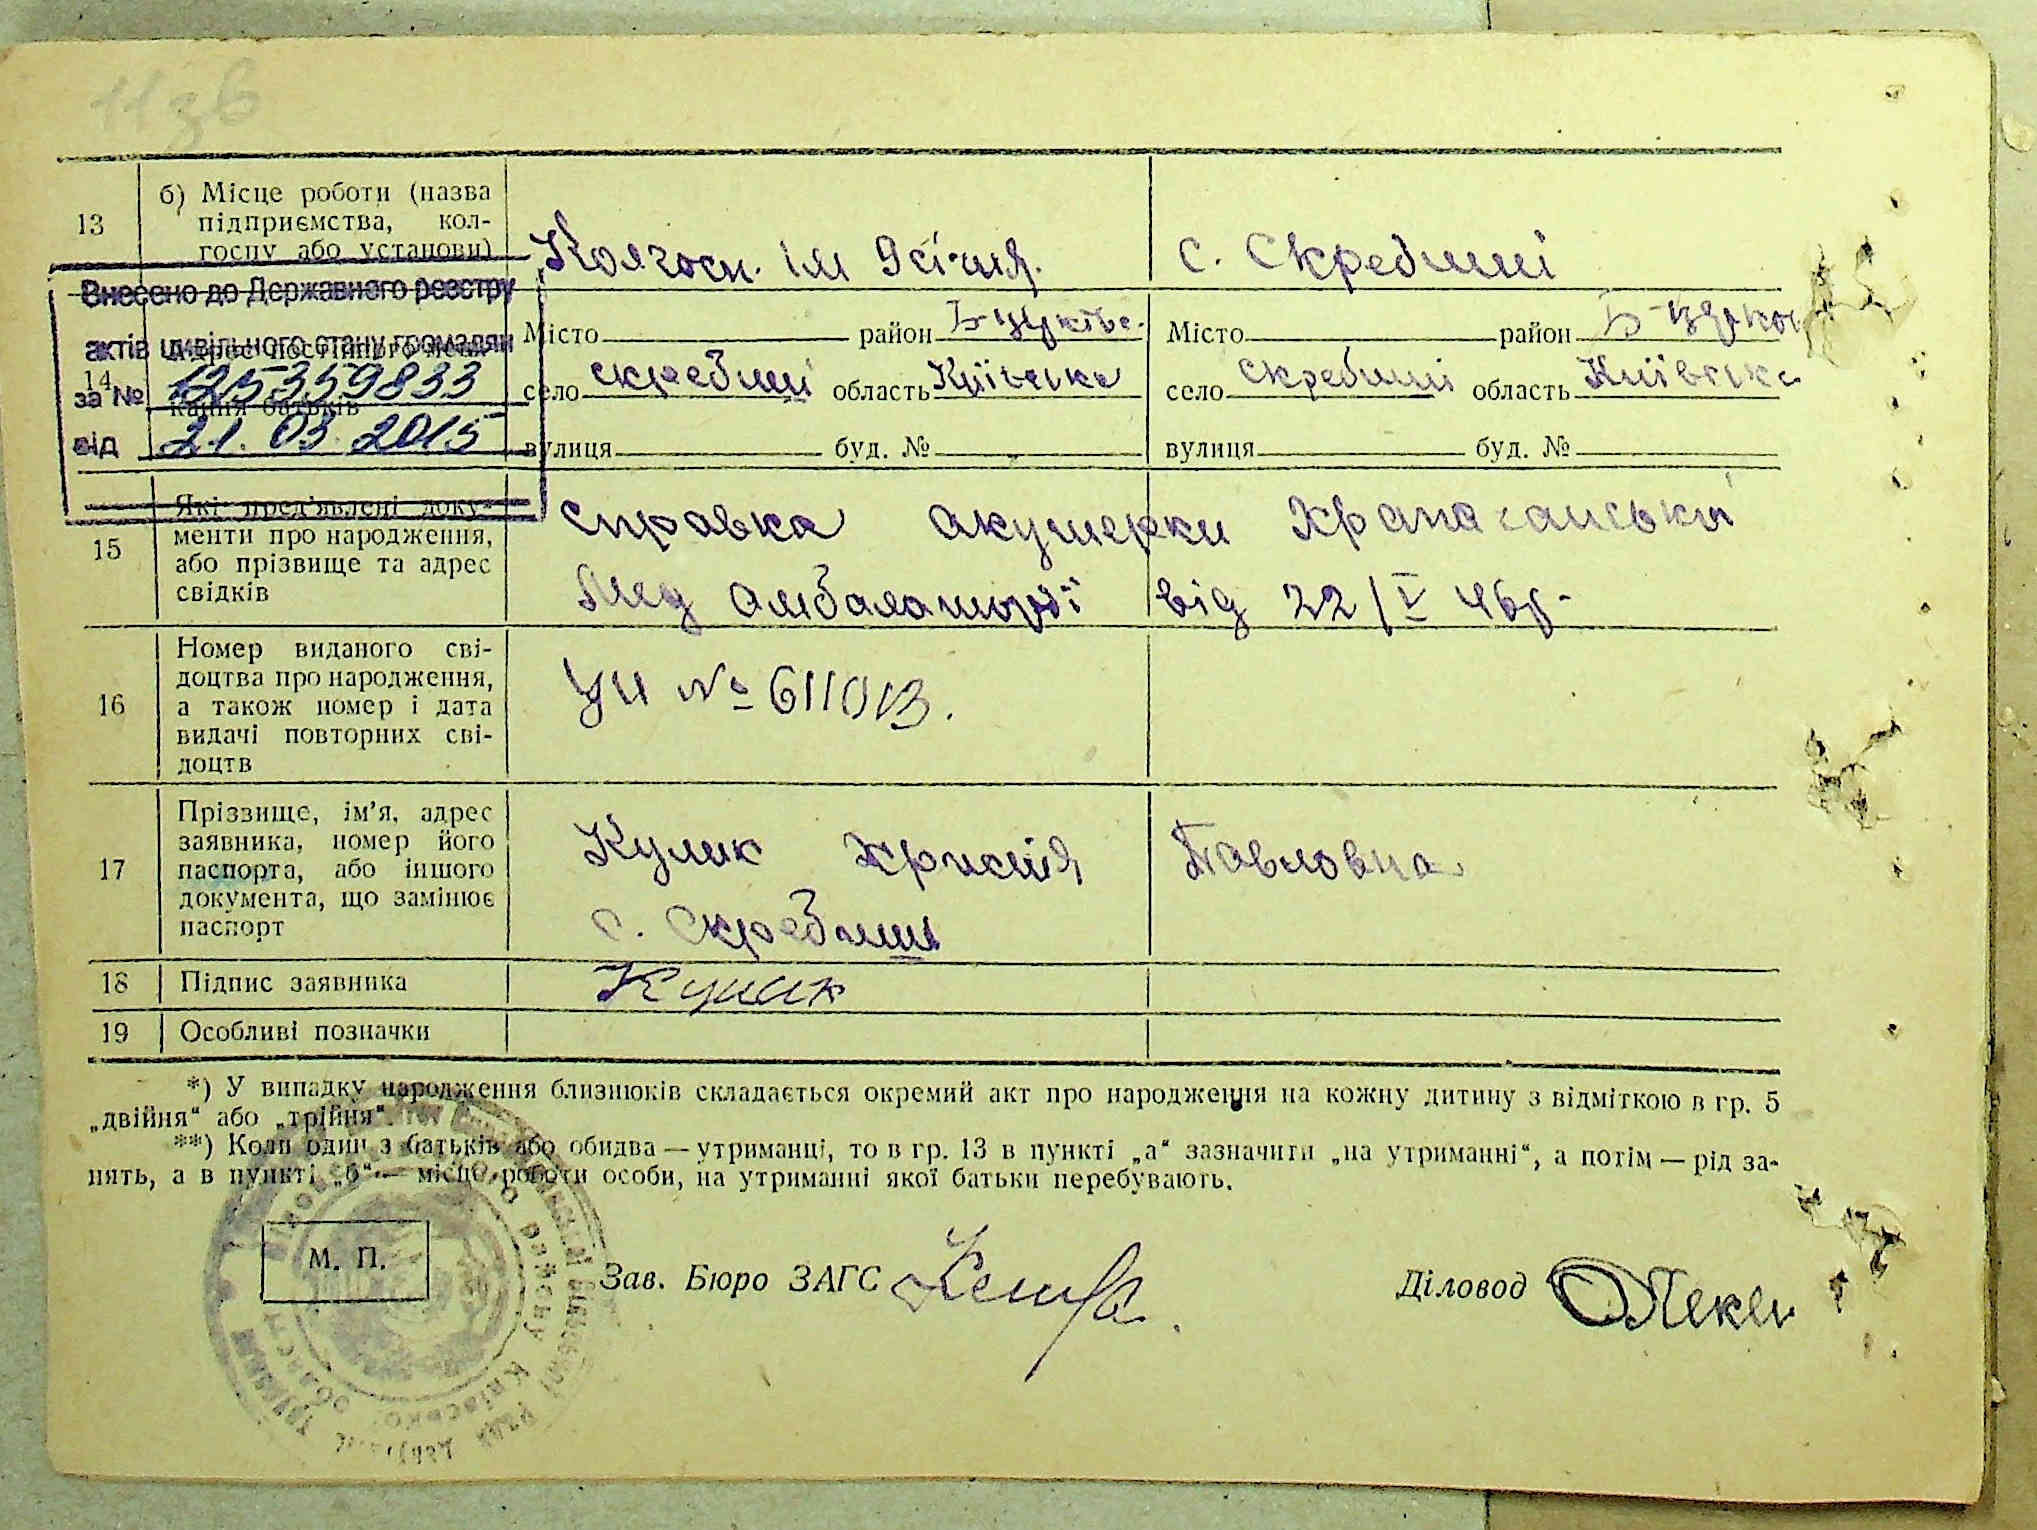 11зв
13
б) Місце роботи (назва
підприємства, кол-
госпу або установи)
Колгосп. ім 9 січня.
с. Скребиші
Внесено до Державного реєстру
актів цивільного стану громадян
за № 125359833
від 21.03.2015
14
Адрес постійного меш-
кання батьків
Місто район Б-церківс.
село Скребиші область Київська
вулиця буд. №
Місто район Б-церков
село Скребиші область Київська
вулиця буд. №
15
Які пред'явлені доку-
менти про народження,
або прізвище та адрес
свідків
справка акушерки
Мед амбалаторії від 22/V 46р.
16
Номер виданого сві-
доцтва про народження,
а також номер і дата
видачі повторних сві-
доцтв
УИ № 611013.
17
Прізвище, ім'я, адрес
заявника, номер його
паспорта, або іншого
документа, що замінює
паспорт
Кулик Христія Павловна
с. Скребиші
18
Підпис заявника
Кулик
19
Особливі позначки
*) У випадку народження близнюків складається окремий акт про народження на кожну дитину з відміткою в гр. 5
„двійня“ або „трійня“.
**) Коли один з батьків або обидва — утриманці, то в гр. 13 в пункті „а“ зазначити „на утриманні“, а потім — рід за-
нять, а в пункті „б“ — місце роботи особи, на утриманні якої батьки перебувають.
М. П.
Зав. Бюро ЗАГС
Діловод